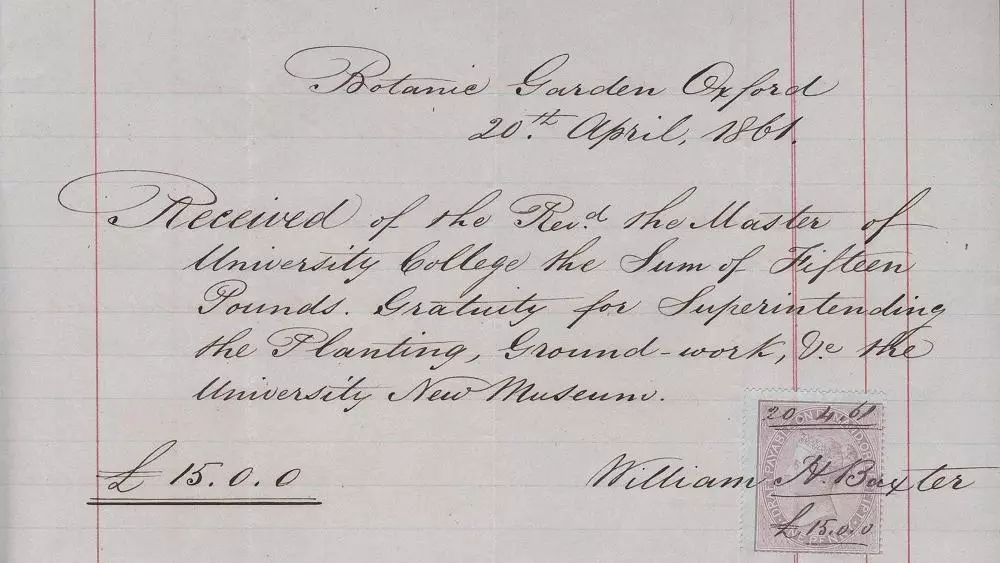 Botanic Garden Oxford
20.th April, 1861.
Received of the Rev.d the Master of
University College the Sum of Fifteen
Pounds. Gratuity for Superintending
the Planting, Ground-work, &c the
University New Museum.
£ 15.0.0
William H. Baxter
20 4.61
DRAFT PAYABLE ON DEMAND OR RECEIPT
£ 15.0.0